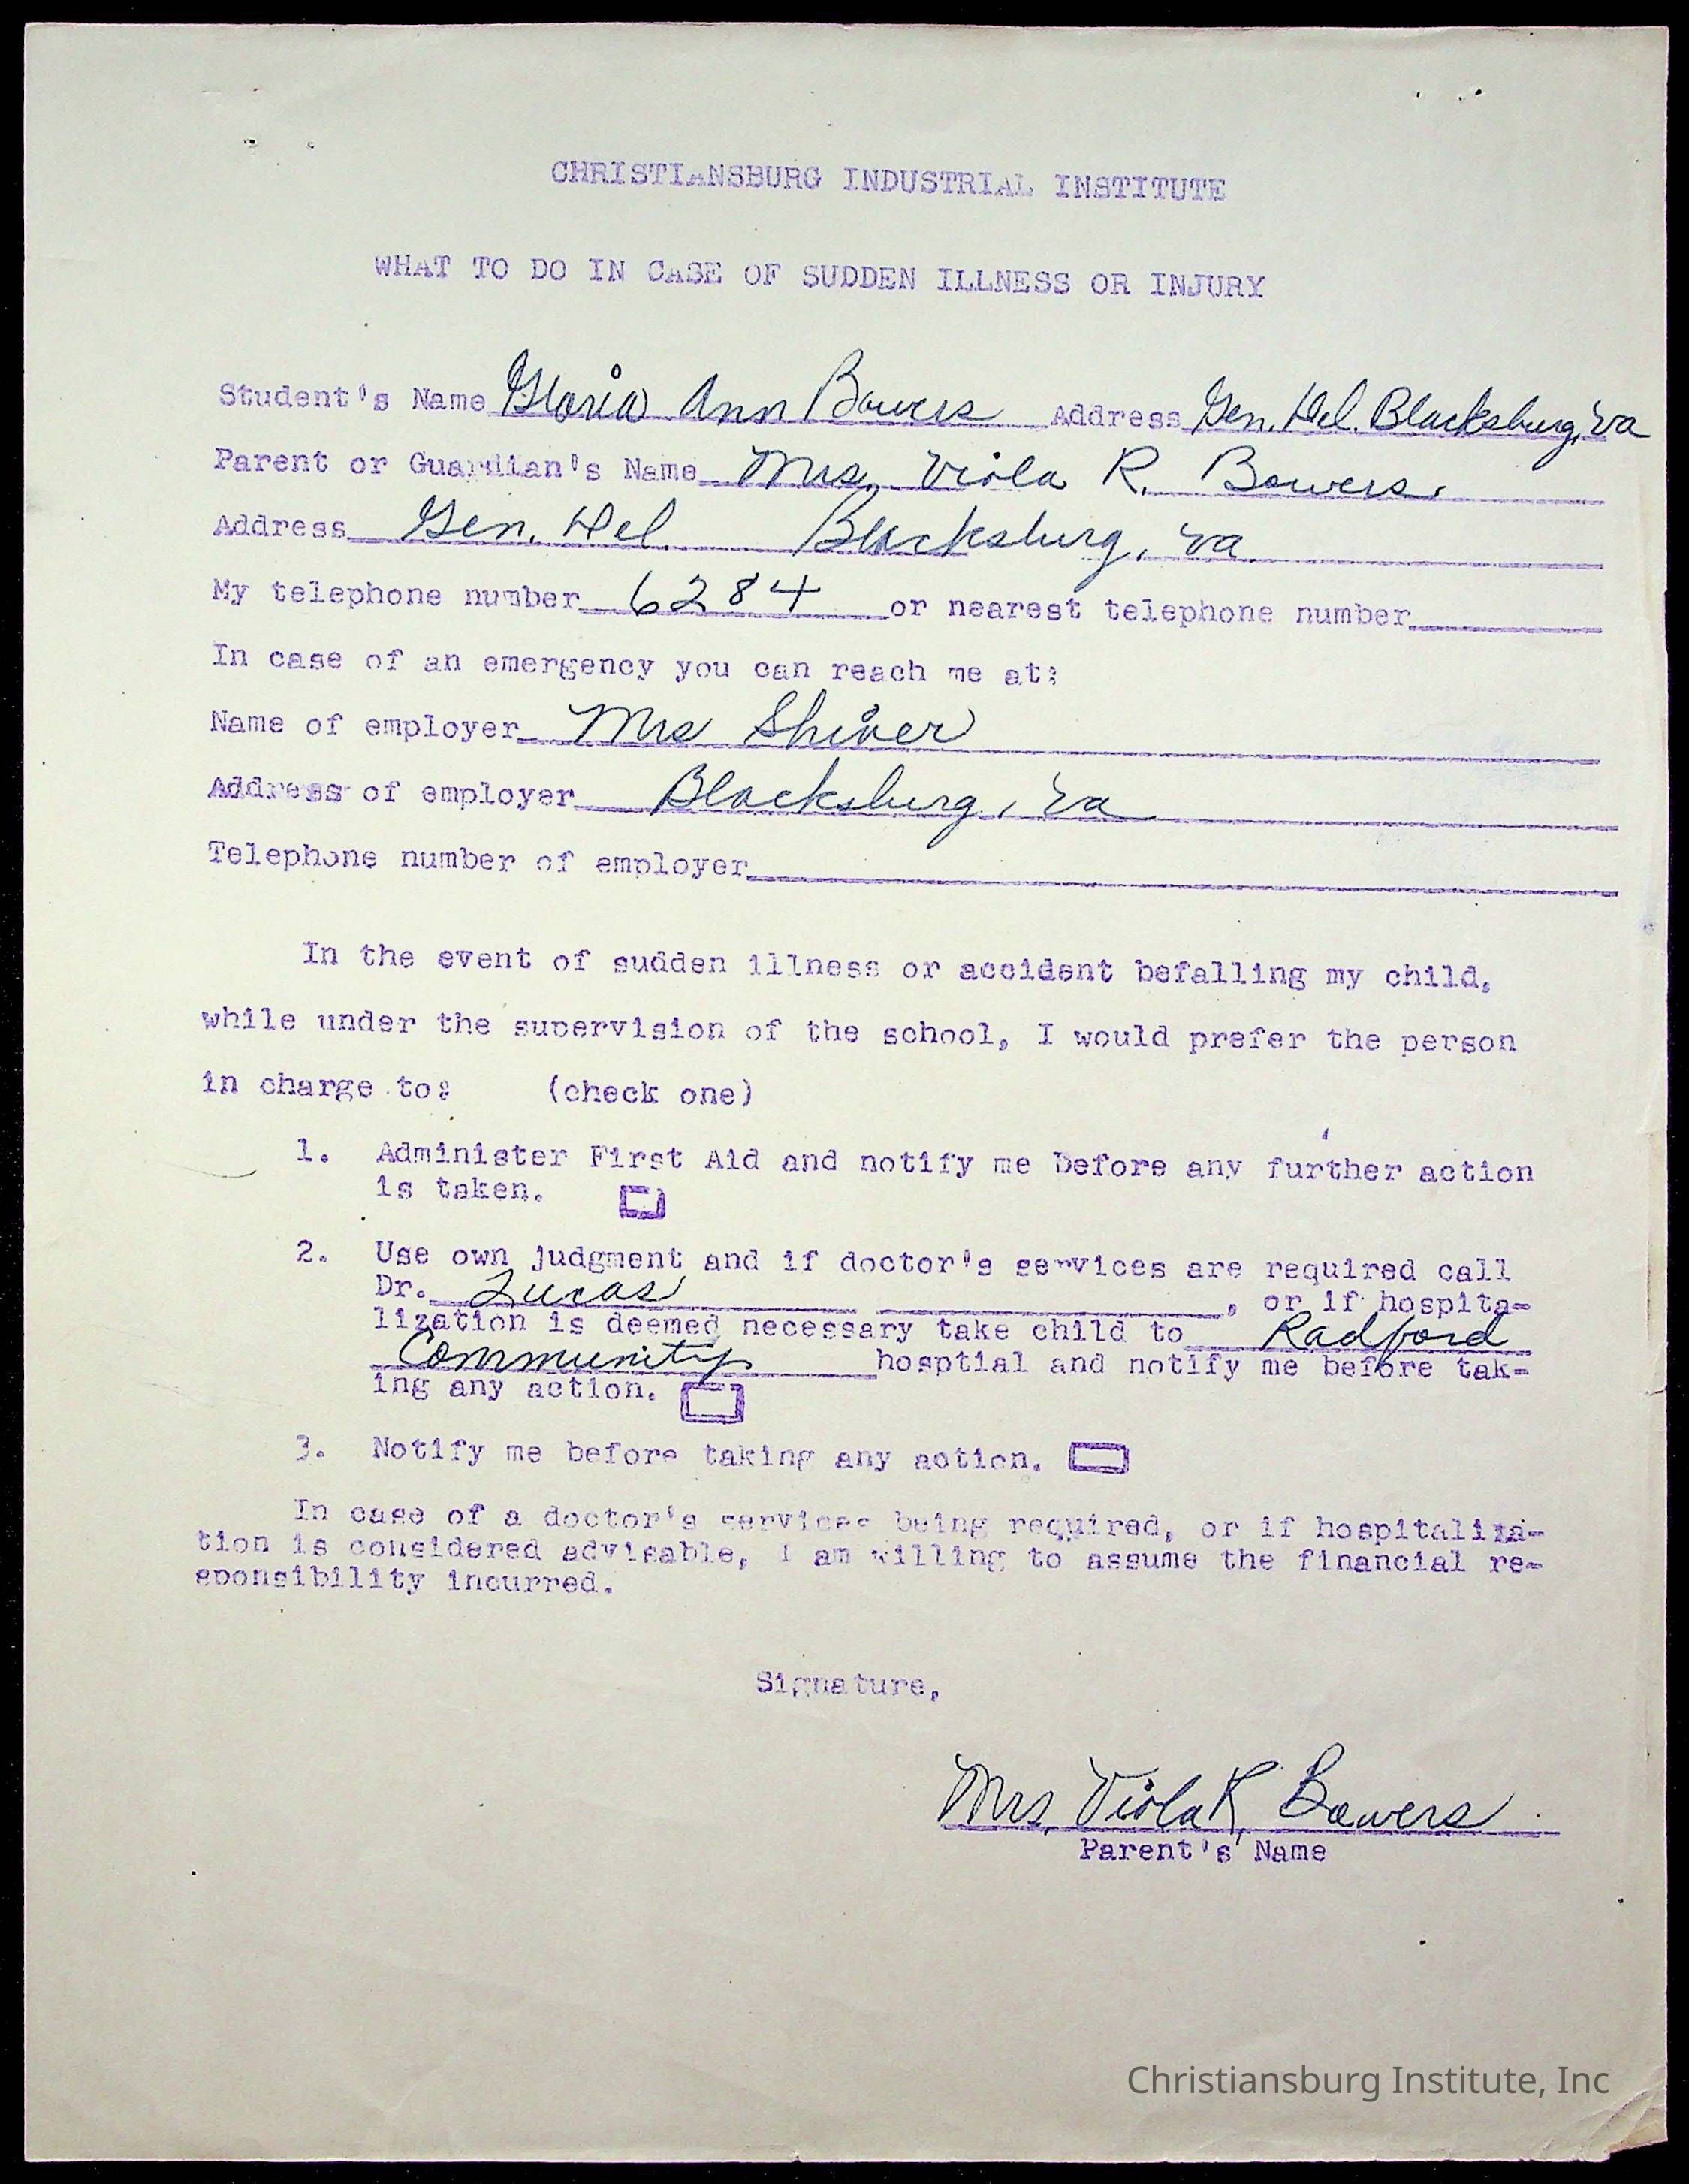 CHRISTIANSBURG INDUSTRIAL INSTITUTE
WHAT TO DO IN CASE OF SUDDEN ILLNESS OR INJURY
Student's Name Gloria Ann Bowers Address Gen. Del. Blacksburg, Va
Parent or Guardian's Name Mrs. Viola R. Bowers.
Address Gen. Del. Blacksburg, Va
My telephone number 6284 or nearest telephone number
In case of an emergency you can reach me at:
Name of employer Mrs Shiver
Address of employer Blacksburg, Va
Telephone number of employer
In the event of sudden illness or accident befalling my child,
while under the supervision of the school, I would prefer the person
in charge to: (check one)
1. Administer First Aid and notify me before any further action
is taken.
2. Use own judgment and if doctor's services are required call
Dr. Lucas , or if hospita-
lization is deemed necessary take child to Radford
Community hosptial and notify me before tak-
ing any action.
3. Notify me before taking any action.
In case of a doctor's services being required, or if hospitaliza-
tion is considered advisable, I am willing to assume the financial re-
sponsibility incurred.
Signature,
Mrs. Viola R. Bowers
Parent's Name
Christiansburg Institute, Inc